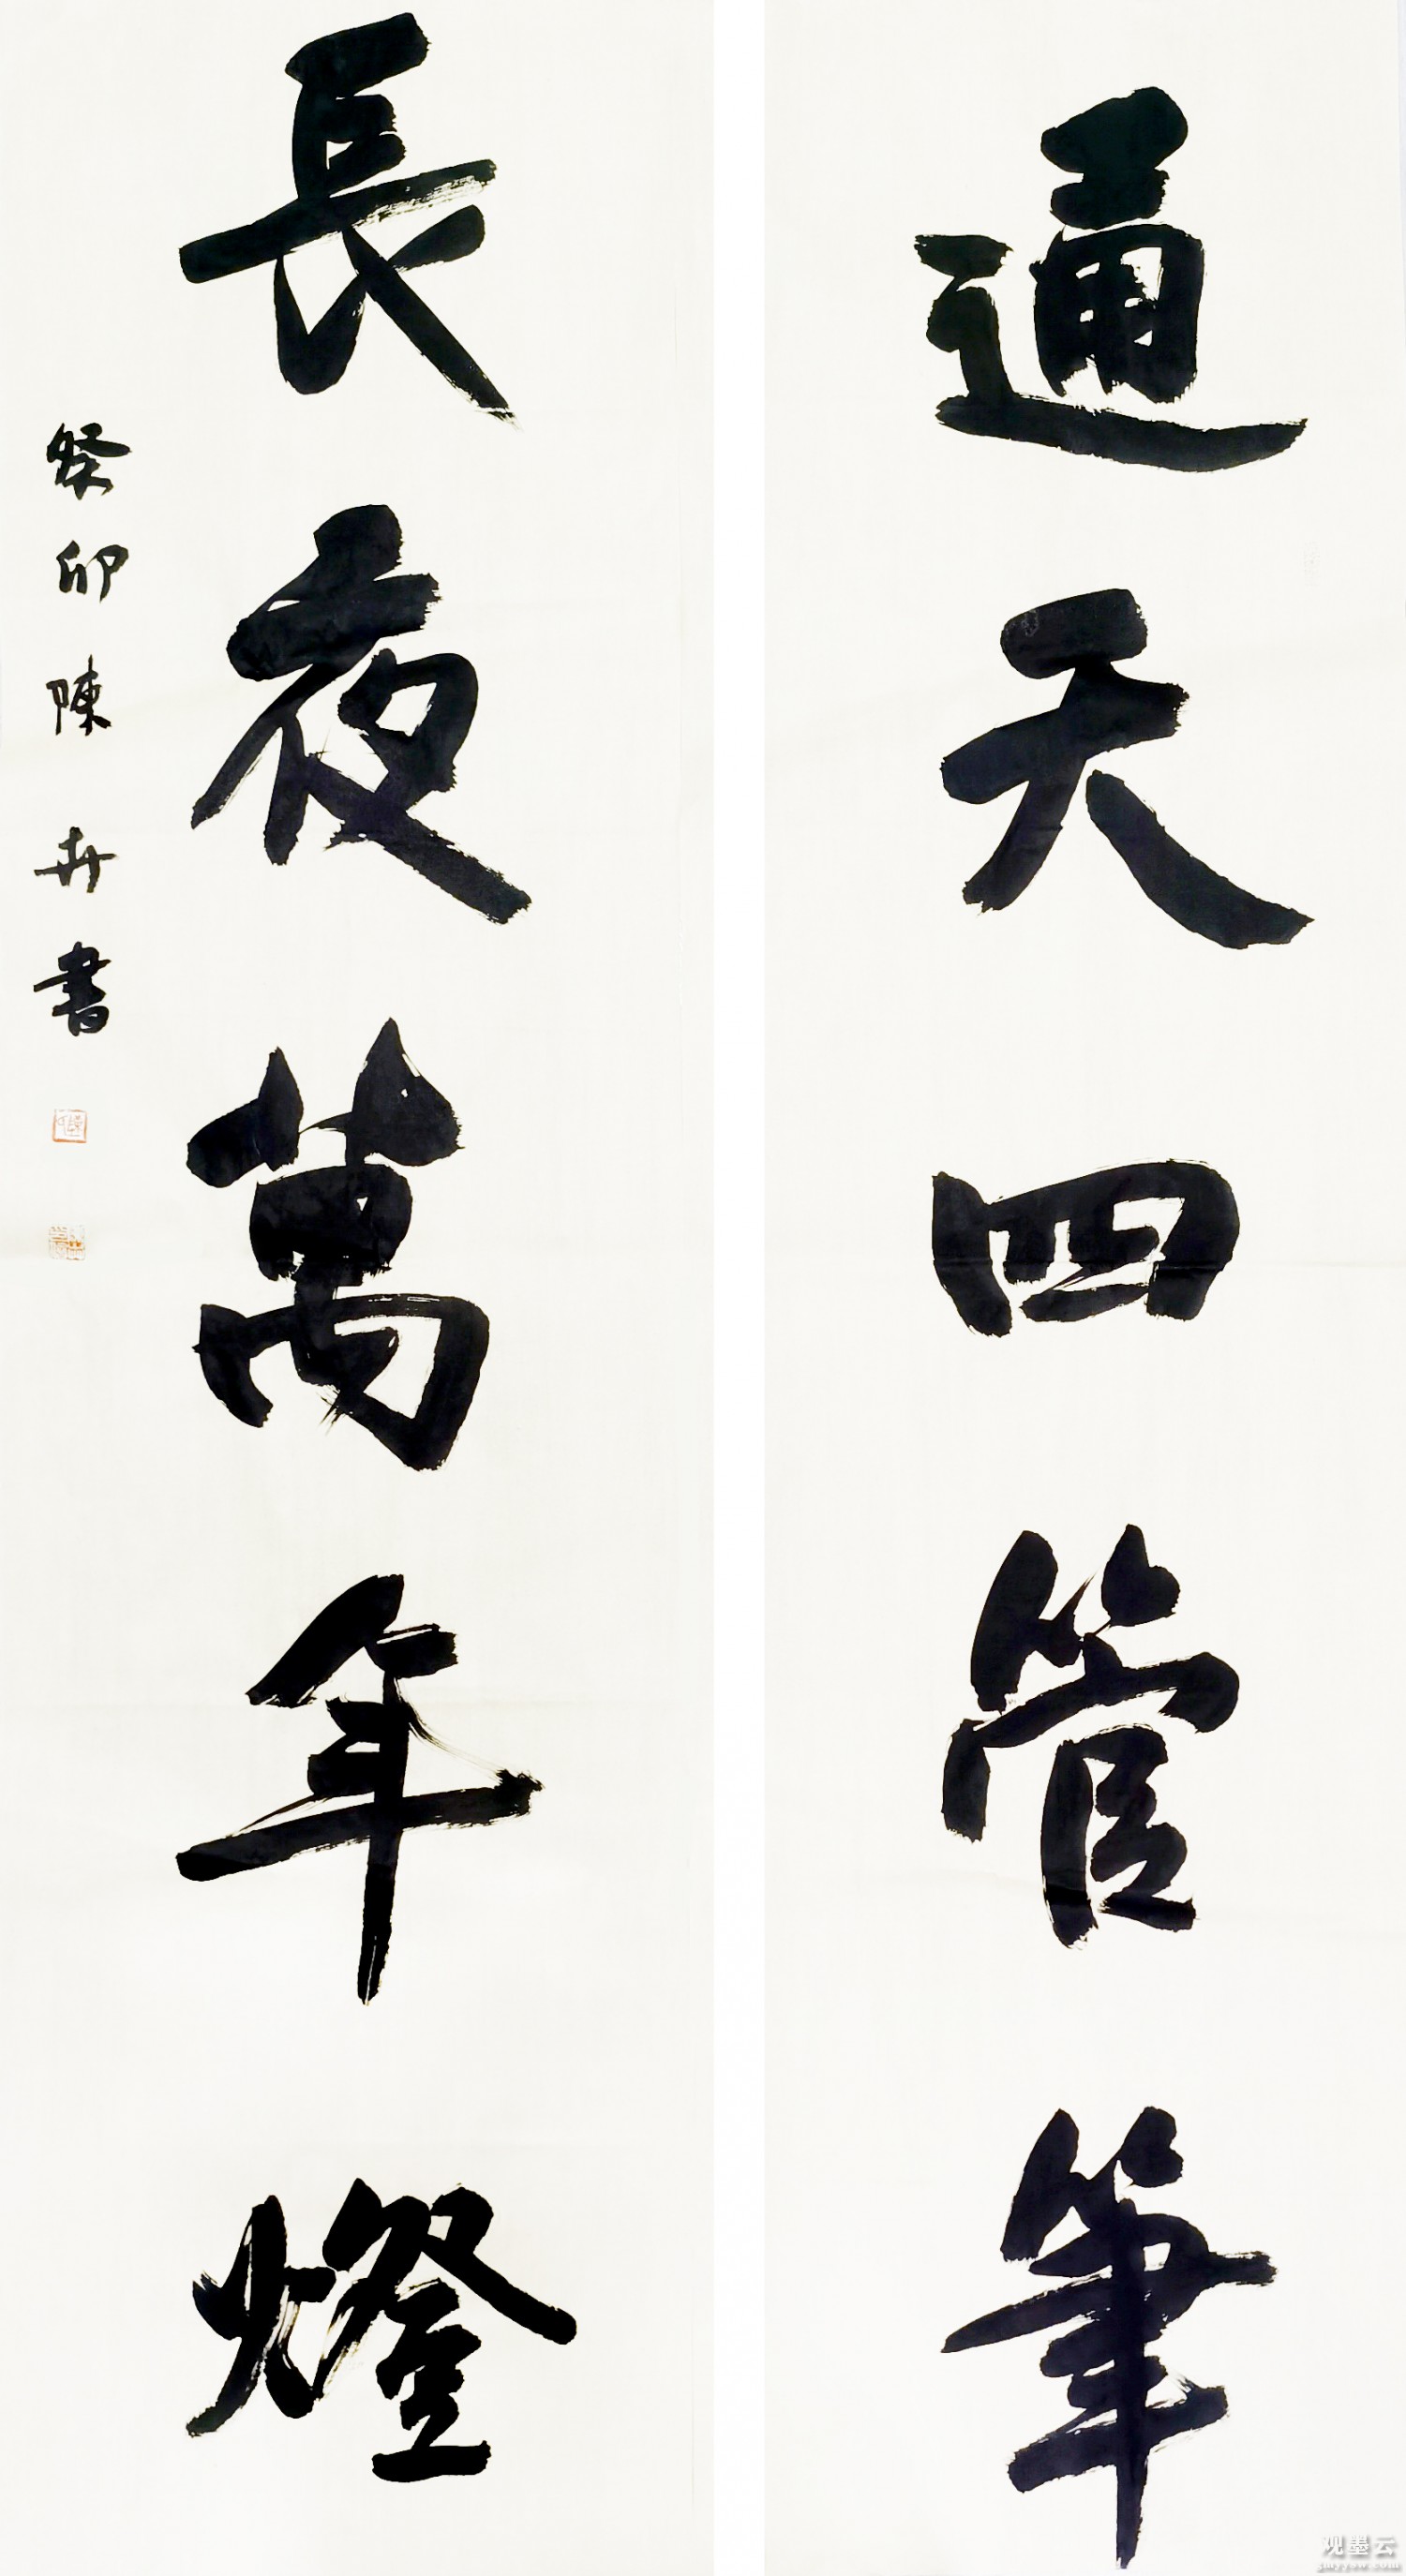 通天四管筆
長夜萬年燈
癸卯陳卉書
观墨云